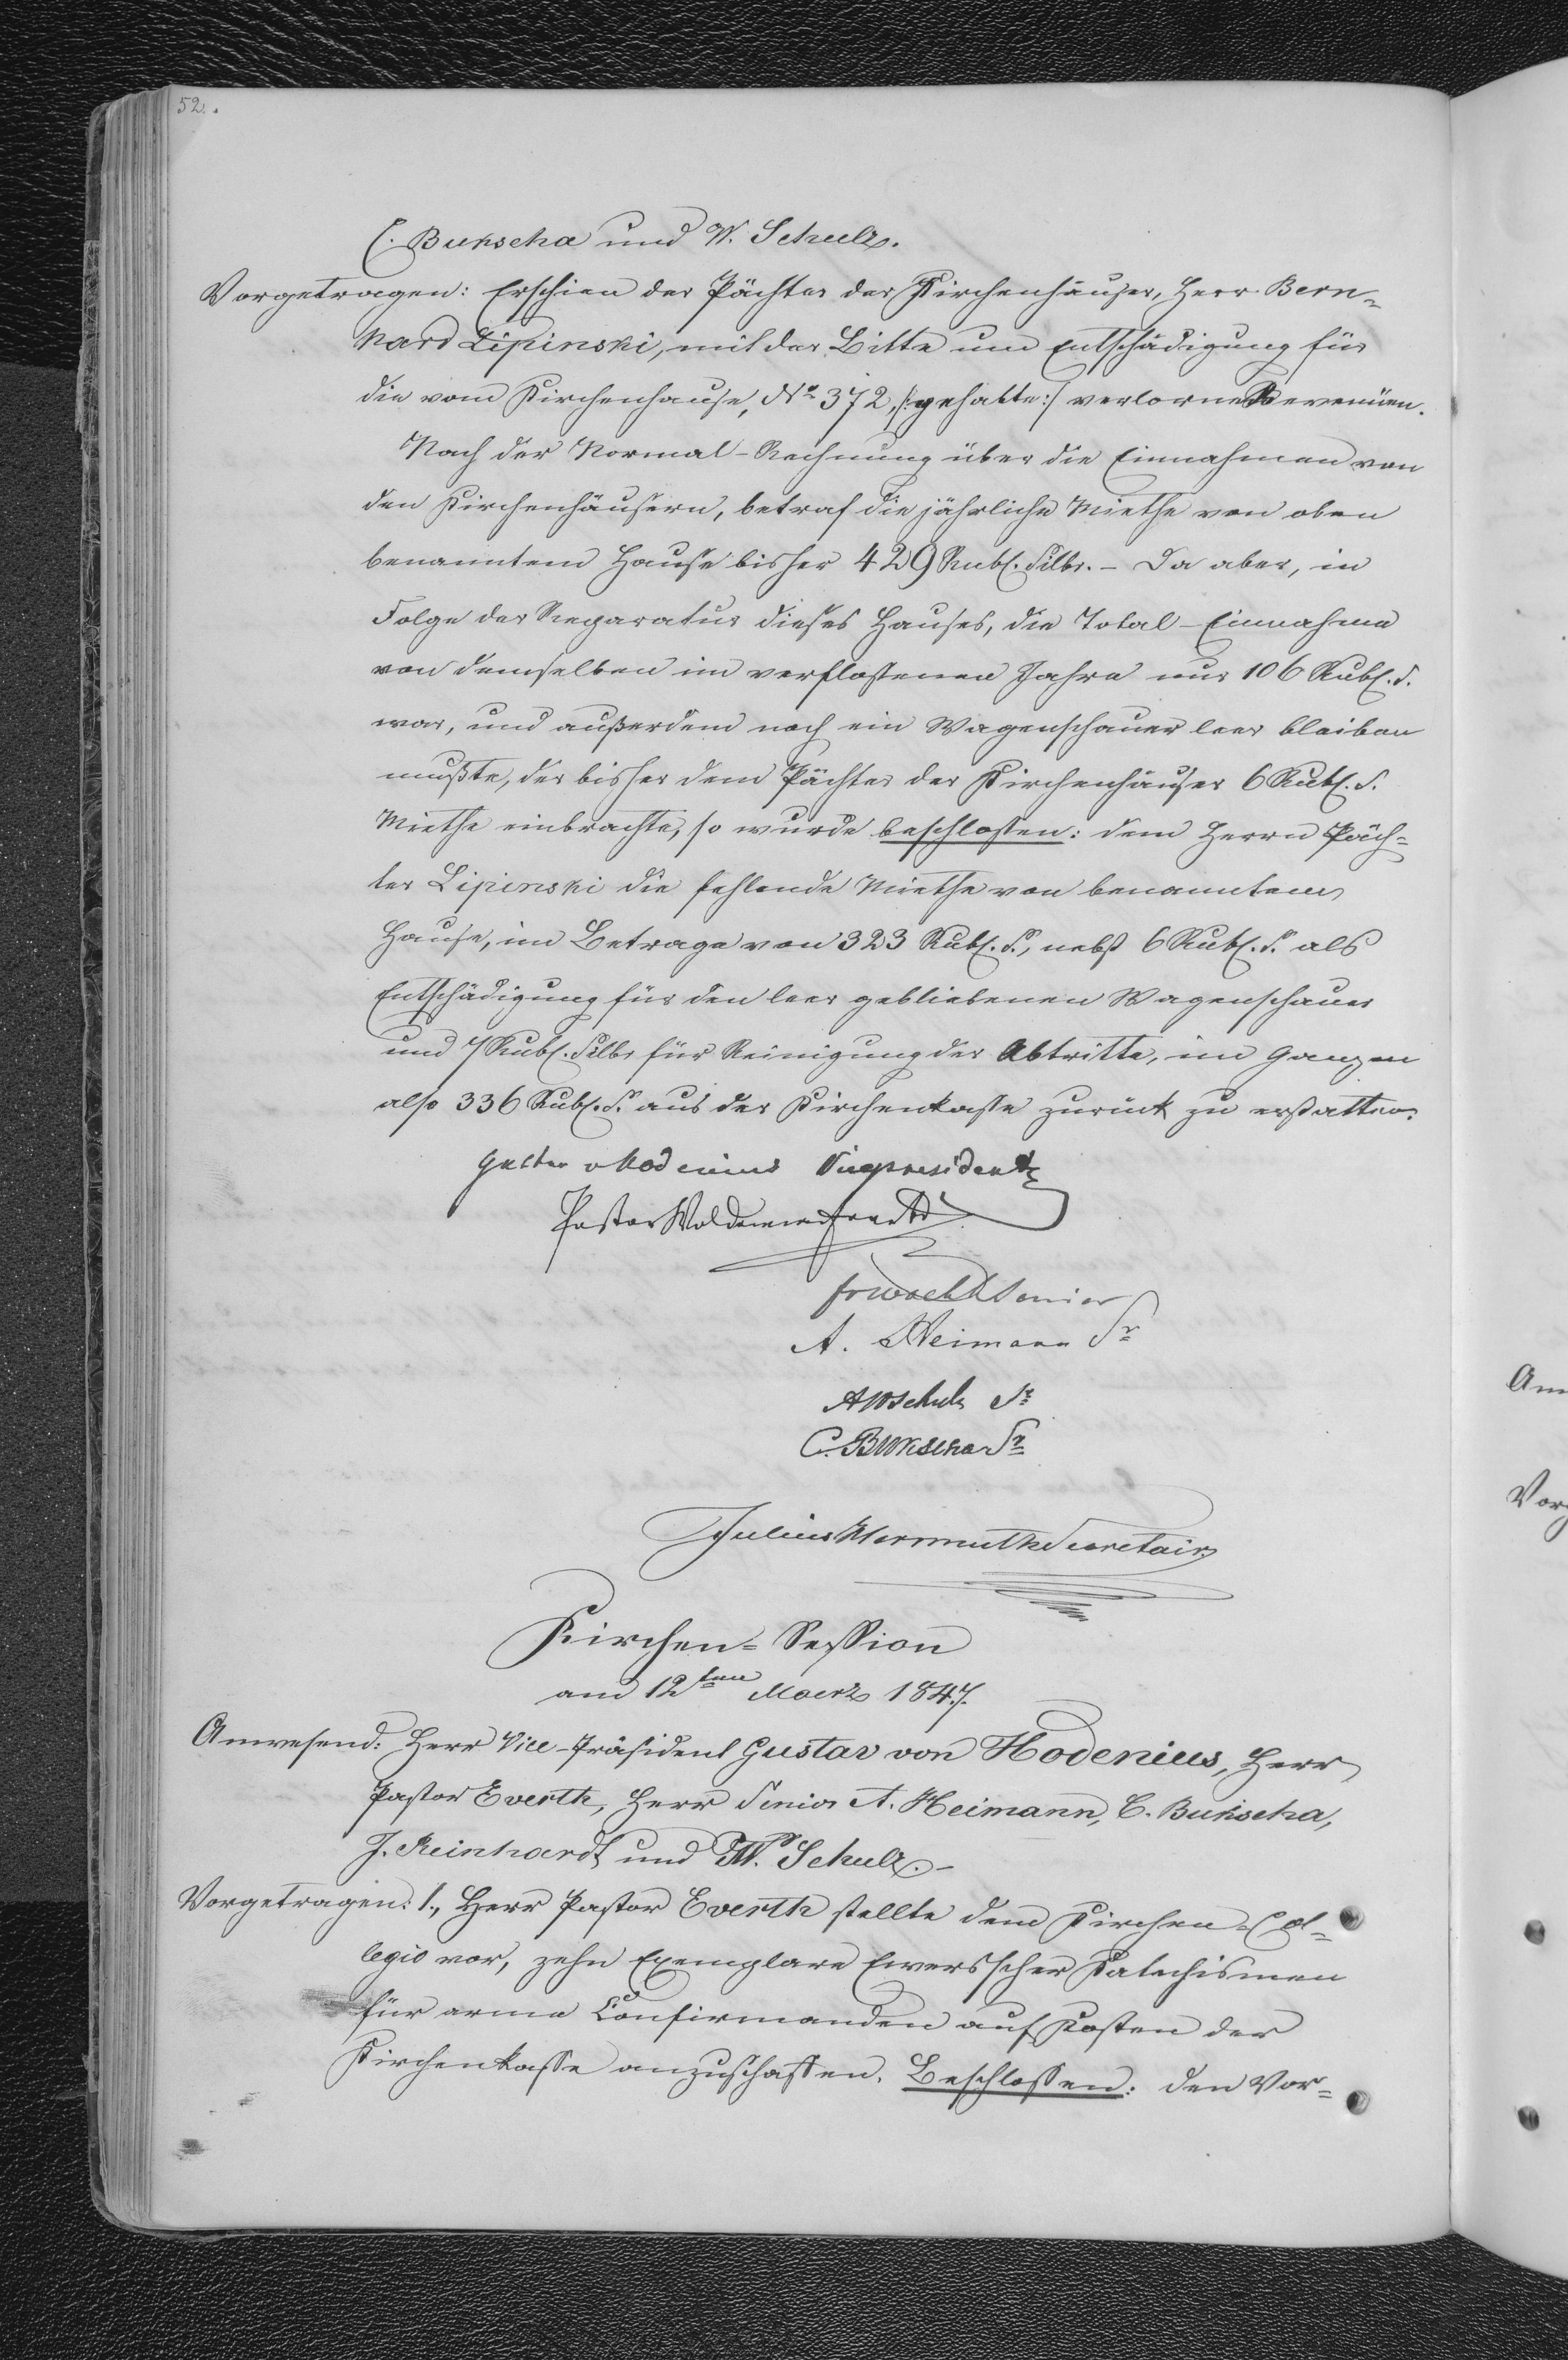 52.
C. Bukscha und W. Schulz.
Vorgetragen: Erschien der Pächter der Kirchenhäuser, Herr Bern-
hard Lipinski, mit der Bitte um Entschädigung für
die vom Kirchenhause, No 372, /:gehabte:/ verlorne Revenüen.
Nach der Normal-Rechnung über die Einnahmen von
den Kirchenhäusern, betraf die jährliche Miethe von oben
benanntem Hause bisher 429 Rubl. Silbr. - Da aber, in
Folge der Reparatur dieses Hauses, die Total-Einnahme
von demselben im verflossenen Jahre nur 106 Rubl. S.
war, und außerdem noch ein Wagenschauer leer bleiben
mußte, der bisher dem Pächter der Kirchenhäuser 6 Rubl. S.
Miethe einbrachte, so wurde beschlossen: dem Herrn Päch-
ter Lipinski die fehlende Miethe von benanntem
Hause, im Betrage von 323 Rubl. S., nebst 6 Rubl. S. als
Entschädigung für den leer gebliebenen Wagenschauer
und 7 Rubl. Silbr für Reinigung der Abtritte, im Ganzen
also 336 Rubl. S. aus der Kirchenkasse zurück zu erstatten.
v Hodenius Vicepresident
Pastor Woldemar
Senior
A. Heimann Sr
AWSchulz Sr
C. Bukscha Sr
Julius Wermuth Secretair
Kirchen-Session
am 12ten Maerz 1847.
Anwesend: Herr Vice-Präsident Gustav von Hodenius, Herr
Pastor Everth, Herr Senior A. Heimann, C. Bukscha,
J. Reinhardt und W. Schulz.-
Vorgetragen: 1., Herr Pastor Everth stellte dem Kirchen-Col-
legio vor, zehn Exemplare Ewersscher Katechismen
für arme Confirmanden auf Kosten der
Kirchenkasse anzuschaffen. Beschlossen: den Vor-